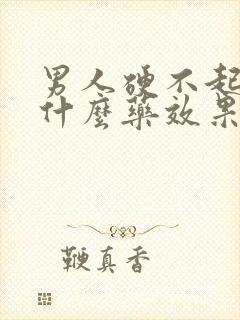 男人硬不起
什麼藥效果
鞭真香